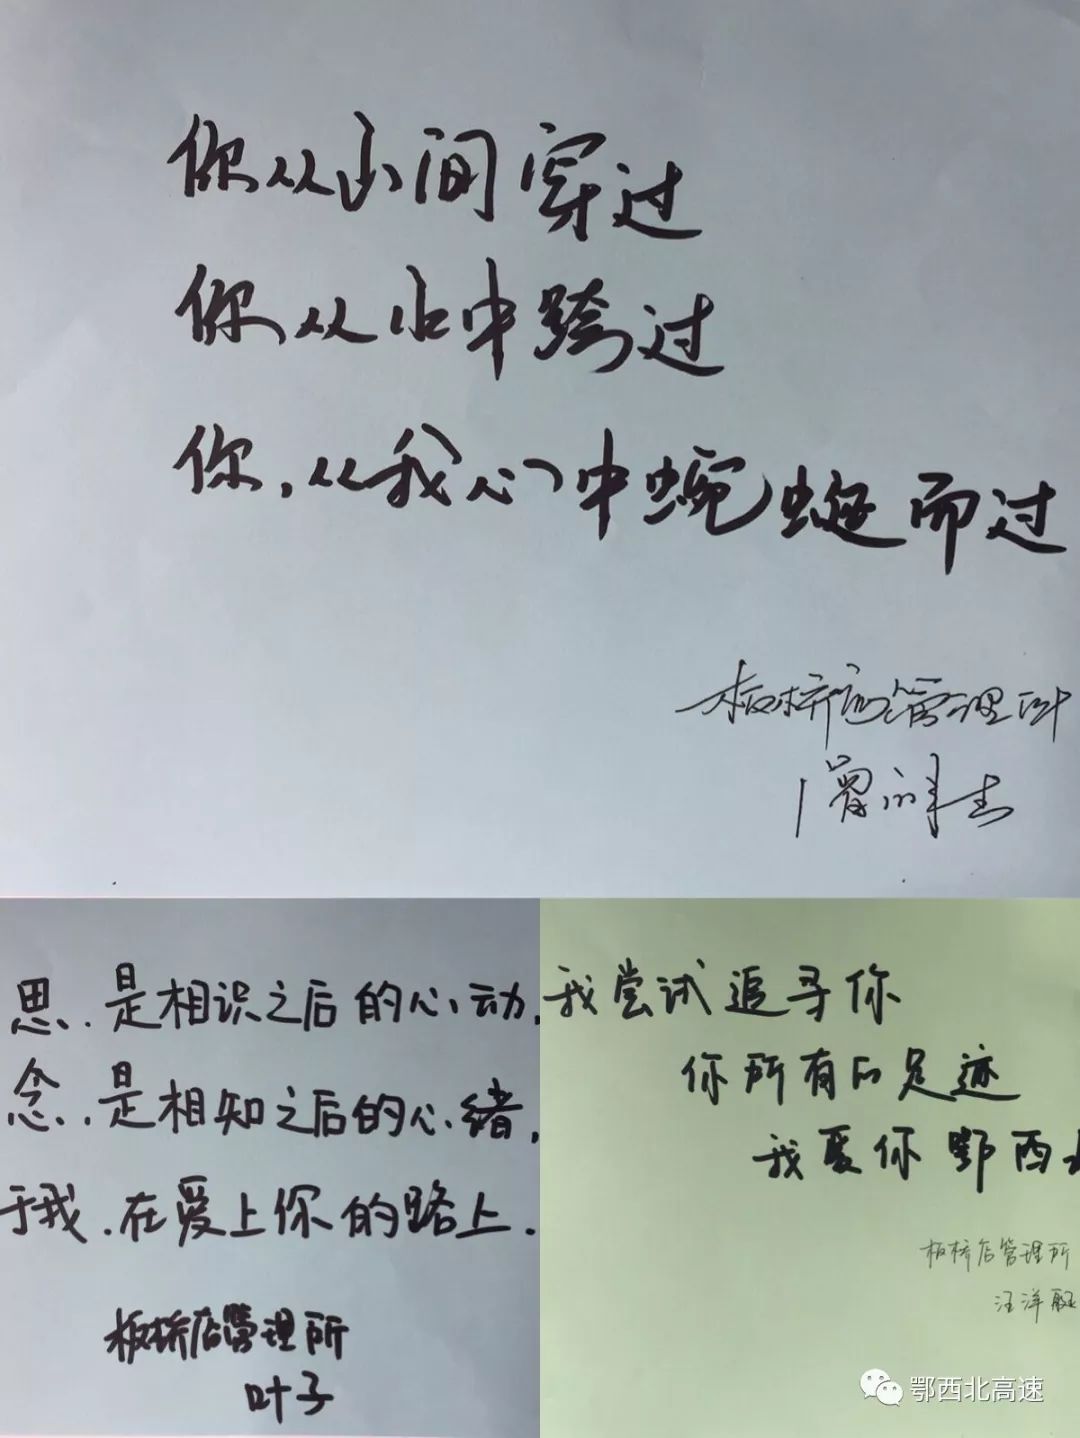 你从山间穿过
你从水中跨过
你,从我心中蜿蜒而过
板桥店管理所
思.是相识之后的心动,
念.是相知之后的心绪,
于我.在爱上你的路上.
板桥店管理所
叶子
我尝试追寻你
你所有的足迹
我爱你鄂西
板桥店管理所
汪洋
鄂西北高速